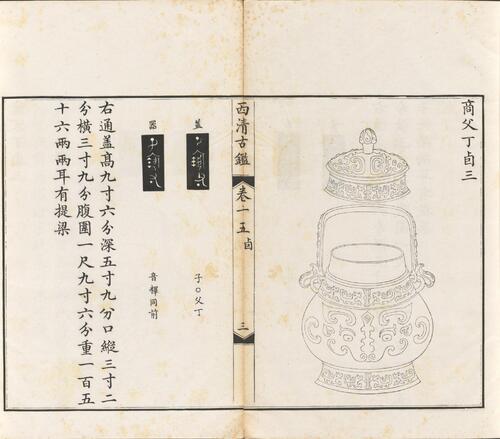 商父丁卣三
西清古鑑
卷十五卣
三
蓋
子○父丁
器
音釋同前
右通蓋髙九寸六分深五寸九分口縱三寸二
分橫三寸九分腹圍一尺九寸六分重一百五
十六兩兩耳有提梁